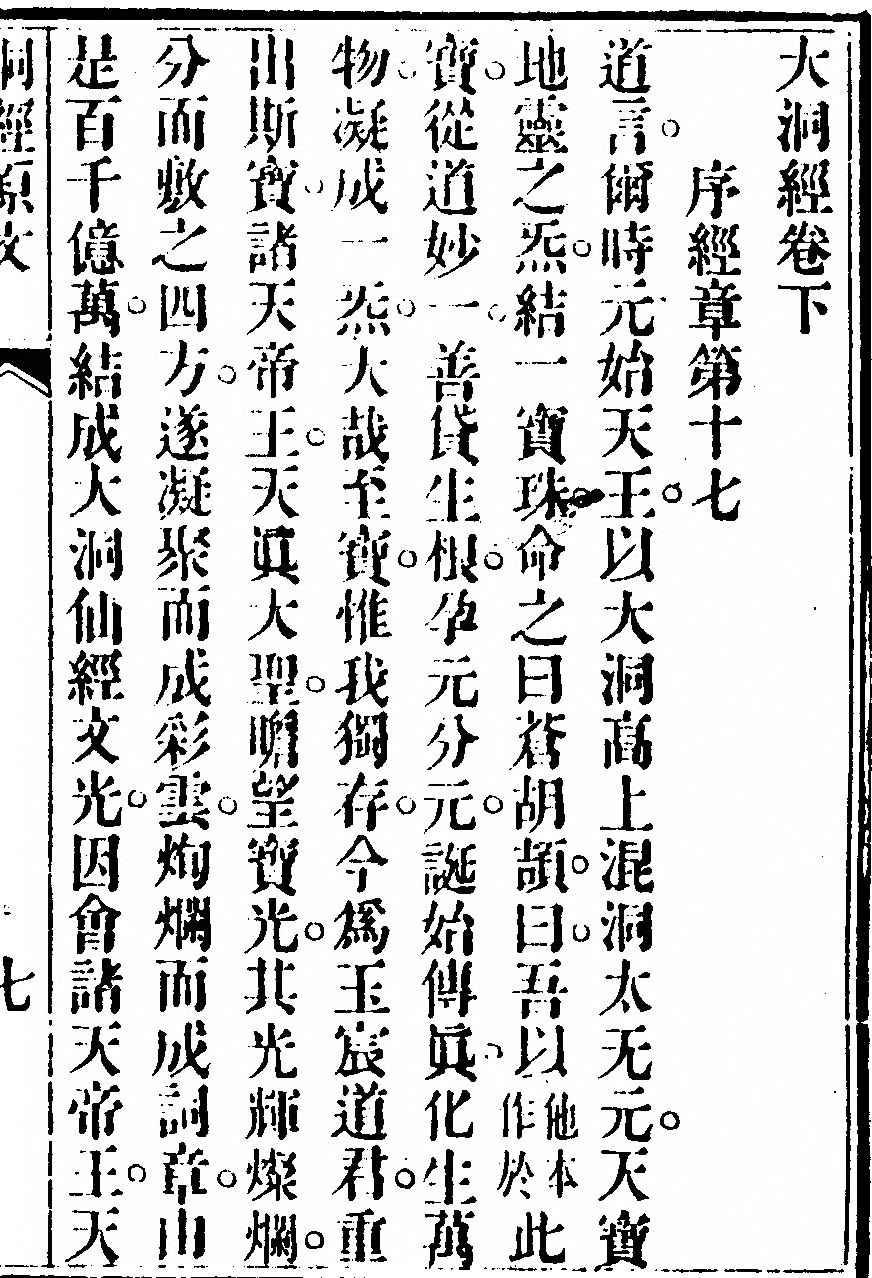 大洞經卷下
序經章第十七
道言。爾時元始天王。以大洞高上混洞太无元。天寶
地靈之炁。結一寶珠。命之曰蒼胡頡。曰。吾以他本作於此
寶。從道妙一。善貸生根。孕元分元。誕始傳眞。化生萬
物。凝成一炁。大哉至寶。惟我獨存。今爲玉宸道君。重
出斯寶。諸天帝王。天眞大聖。瞻望寶光。其光輝燦爛。
分而敷之四方。遂凝聚而成彩雲。炳爛而成詞章。由
是百千億萬。結成大洞仙經文光。因會諸天帝王。天
洞經原文
七